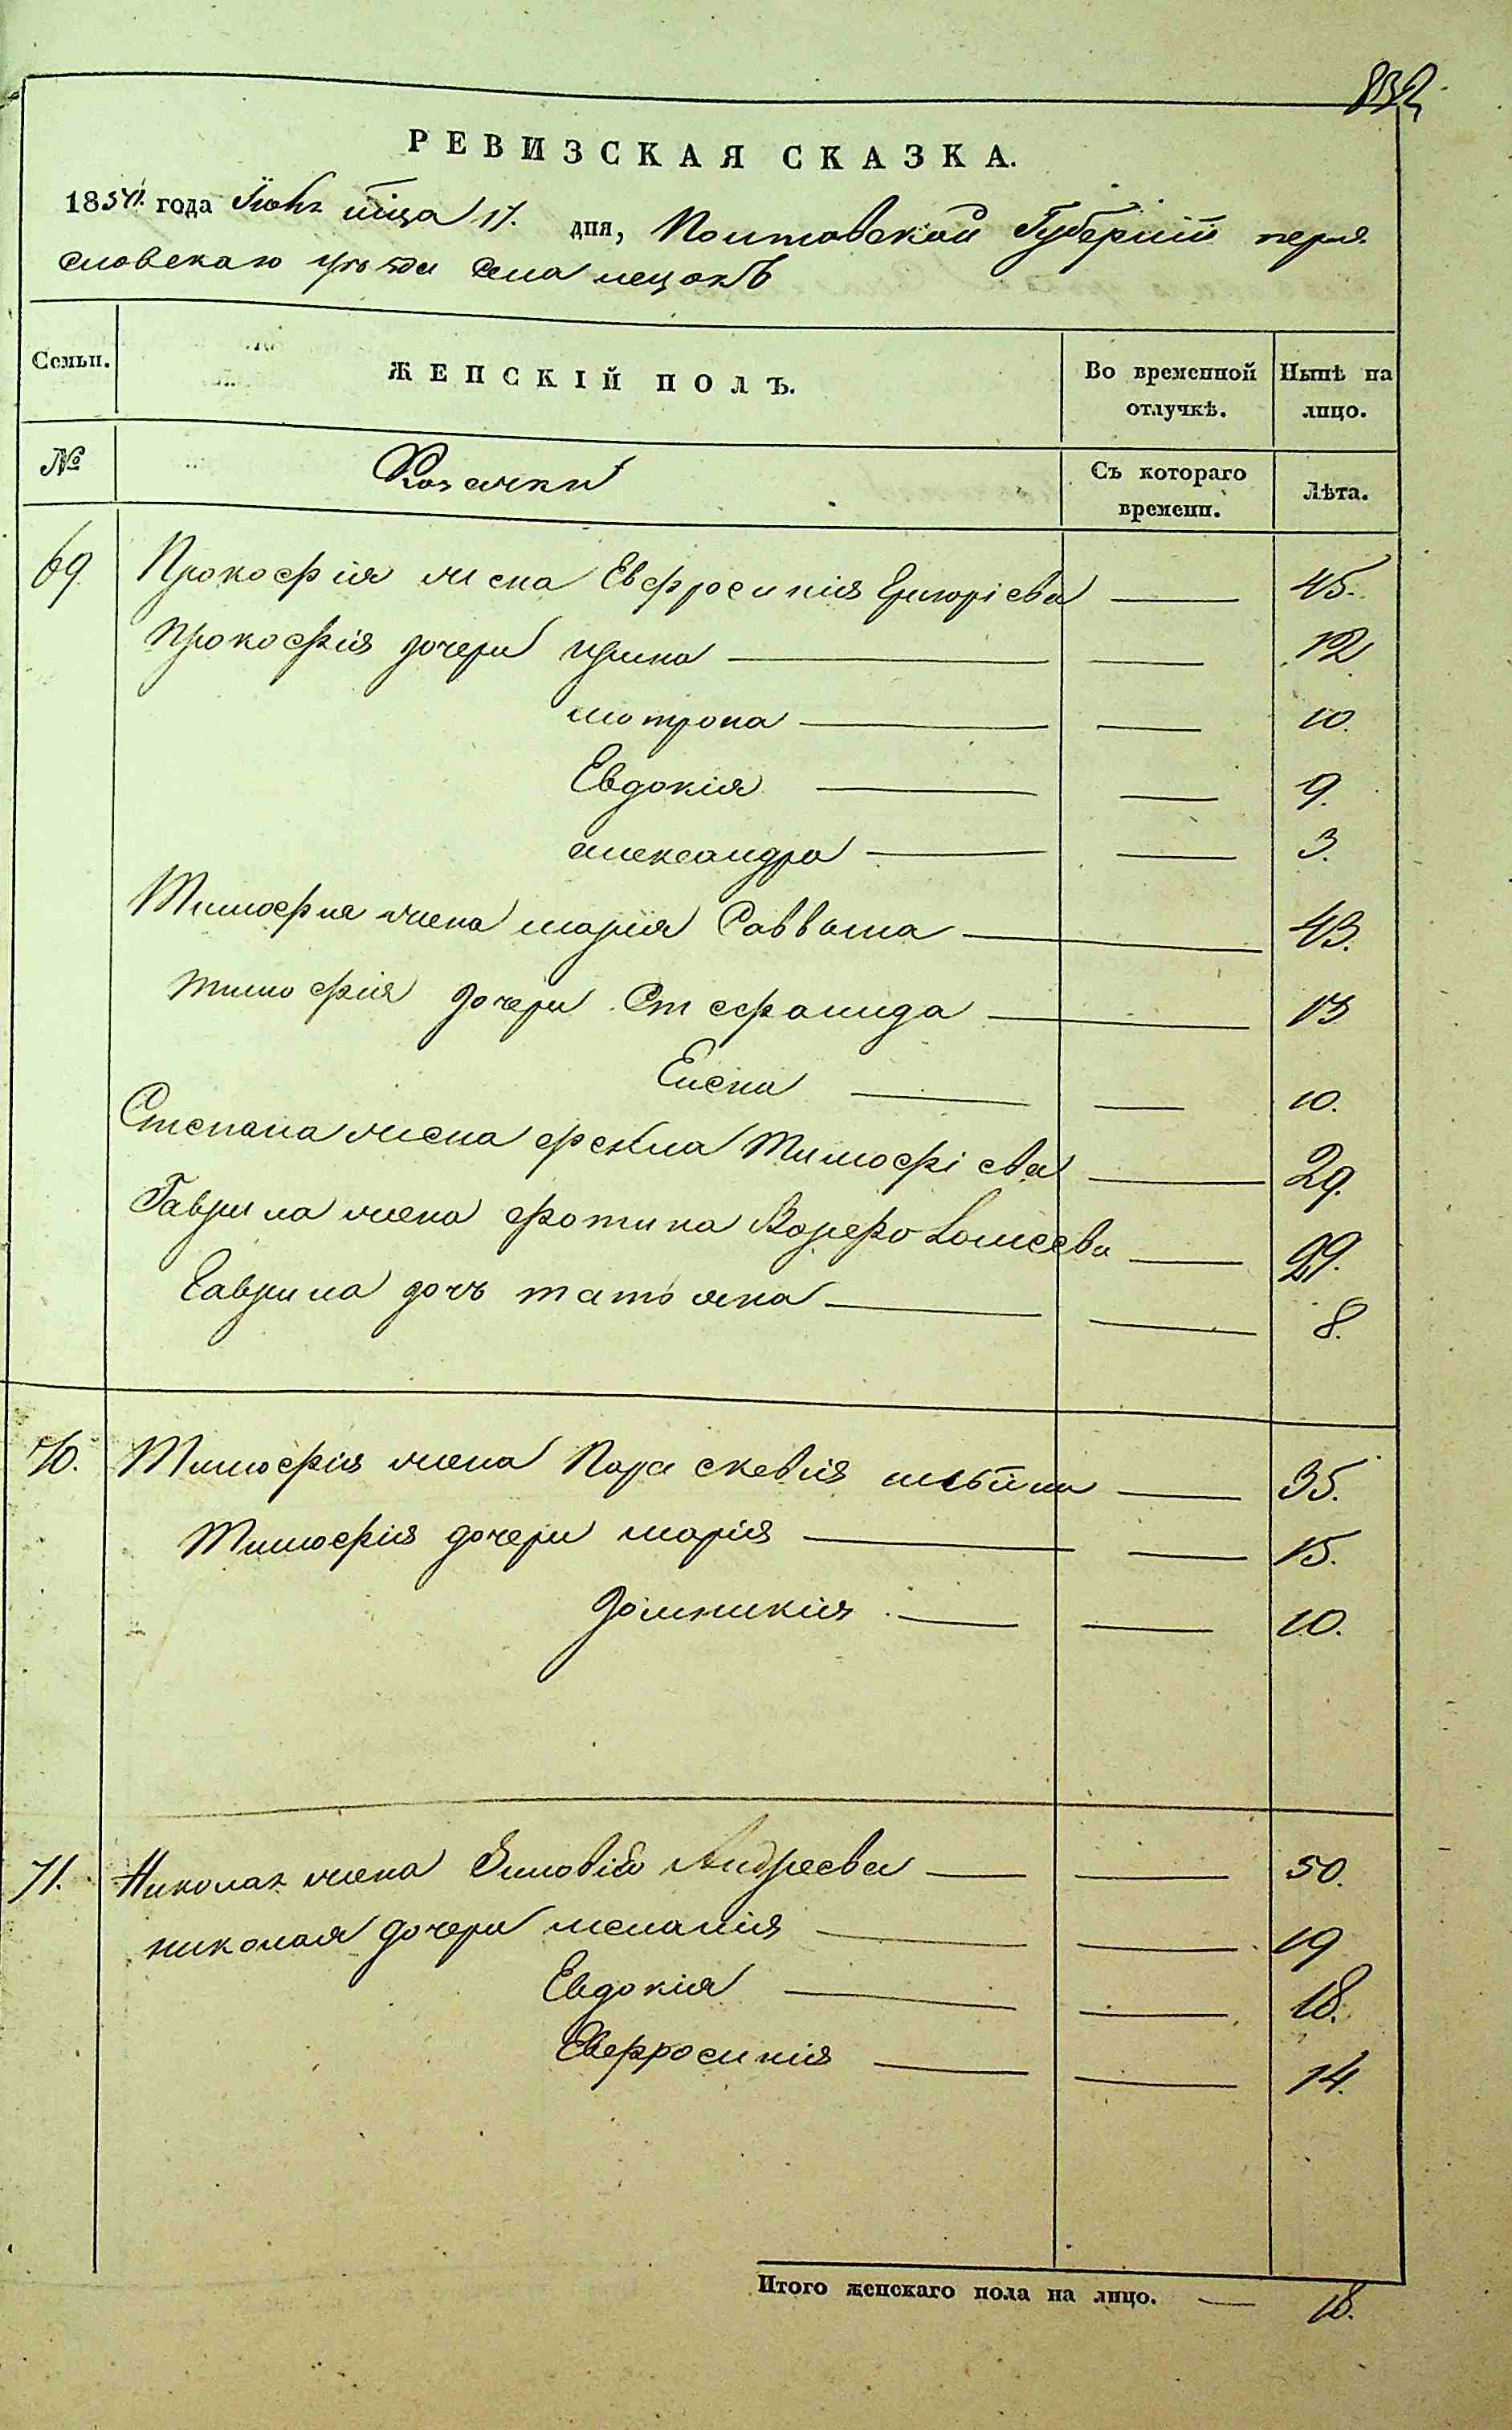 832
РЕВИЗСКАЯ СКАЗКА.
1851 года Іюня мѣсяца 17. дня, Полтавской Губерніи перея
словскаго уѣзда села лецокъ
Семьи. ЖЕНСКІЙ ПОЛЪ. Во временной отлучкѣ. Нынѣ на лицо.
№ Козачки Съ котораго времени. Лѣта.
69 Прокофія жена Евфросинія Григоріева 45.
Прокофія дочери Ирина 12
мотрона 10.
Евдокія 9.
александра 3.
Тимофія жена марія Саввина 43.
тимофія дочери Стефанида 13
Елена 10.
Степана жена фекла Тимофіева 29.
Гаврила жена фотина Варфоломеева 29.
Гаврила дочъ татіяна 8.
70. Тимофія жена Параскевія 35.
Тимофія дочери марія 15.
Домникія 10.
71. Николая жена Зиновія Андреева 50.
николая дочери меланія 19
Евдокія 18.
Евфросинія 14.
Итого женскаго пола на лицо. 18.